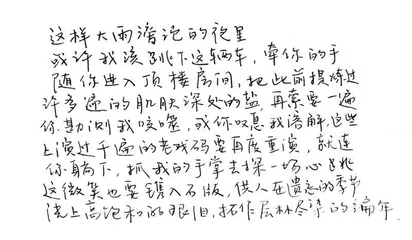 这样大雨滂沱的夜里
或许我该跳下这辆车,牵你的手
随你进入顶楼房间,把此前提炼过
许多遍的肌肤深处的盐,再索要一遍
你勘测我吞噬,或你叹息我溶解,这些
上演过千遍的老戏码要再度重演,就连
你躺下,抓我的手掌去探一场心跳
这微笑也要镌入石版,供人在遗忘的季节
浇上高饱和的眼泪,拓作层林尽染的遍年